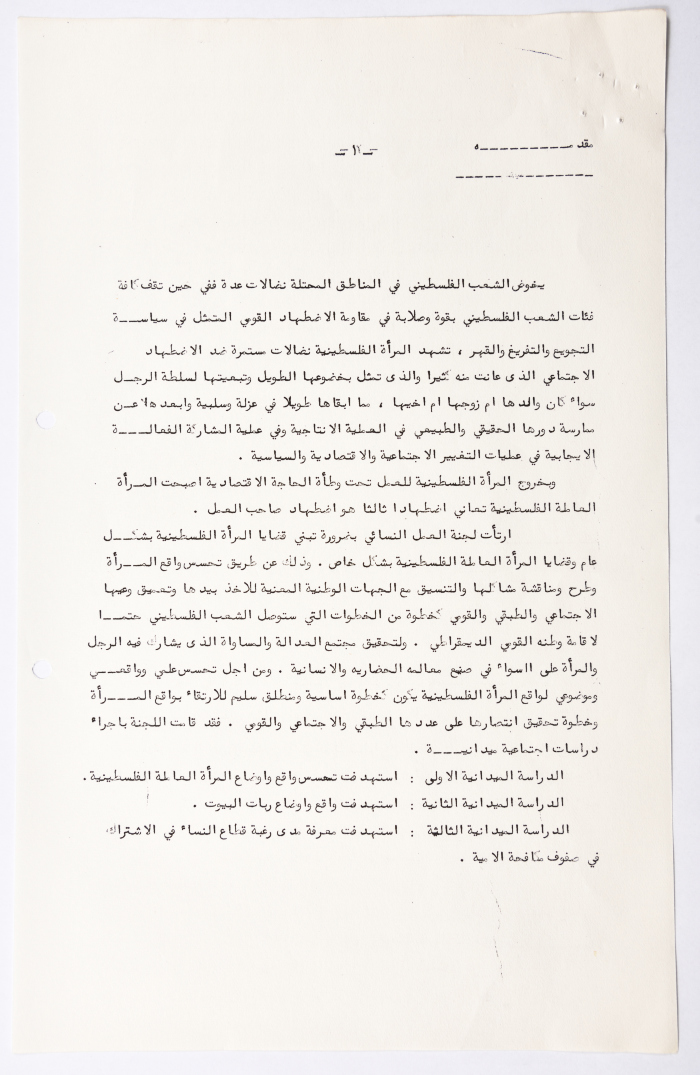 مقدمـــــــــــه
-١٢-
يخوض الشعب الفلسطيني في المناطق المحتلة نضالات عدة ففي حين تقف كافة
فئات الشعب الفلسطيني بقوة وصلابة في مقاومة الاضطهاد القومي المتمثل في سياســـة
التجويع والتفريغ والقهر ، تشهد المرأة الفلسطينية نضالات مستمرة ضد الاضطهاد
الاجتماعي الذى عانت منه كثيرا والذى تمثل بخضوعها الطويل وتبعيتها لسلطة الرجــل
سواء كان والدها ام زوجها ام اخيها ، مما ابقاها طويلا في عزلة وسلبية وابعدها عــن
ممارسة دورها الحقيقي والطبيعي في العملية الانتاجية وفي عملية المشاركة الفعالـــــة
الايجابية في عمليات التغيير الاجتماعية والاقتصادية والسياسية .
وبخروج المرأة الفلسطينية للعمل تحت وطأة الحاجة الاقتصادية اصبحت المــرأة
العاملة الفلسطينية تعاني اضطهادا ثالثا هو اضطهاد صاحب العمل .
ارتأت لجنة العمل النسائي بضرورة تبني قضايا المرأة الفلسطينية بشكـــل
عام وقضايا المرأة العاملة الفلسطينية بشكل خاص . وذلك عن طريق تحسس واقع المـــرأة
وطرح ومناقشة مشاكلها والتنسيق مع الجهات الوطنية المعنية للاخذ بيدها وتعميق وعيها
الاجتماعي والطبقي والقومي كخطوة من الخطوات التي ستوصل الشعب الفلسطيني حتمـــا
لاقامة وطنه القومي الديمقراطي . ولتحقيق مجتمع العدالة والمساواة الذى يشارك فيه الرجل
والمرأة على السواء في صنع معالمه الحضاريه والانسانية . ومن اجل تحسس علمي وواقعـــي
وموضوعي لواقع المرأة الفلسطينية يكون كخطوة اساسية ومنطلق سليم للارتقاء بواقع المـــرأة
وخطوة تحقيق انتصارها على عددها الطبقي والاجتماعي والقومي . فقد قامت اللجنة باجراء
دراسات اجتماعية ميدانيـــــة .
الدراسة الميدانية الاولى : استهدفت تحسس واقع واوضاع المرأة العاملة الفلسطينية .
الدراسة الميدانية الثانية : استهدفت واقع واوضاع ربات البيوت .
الدراسة الميدانية الثالثة : استهدفت معرفة مدى رغبة قطاع النساء في الاشتراك
في صفوف مكافحة الامية .